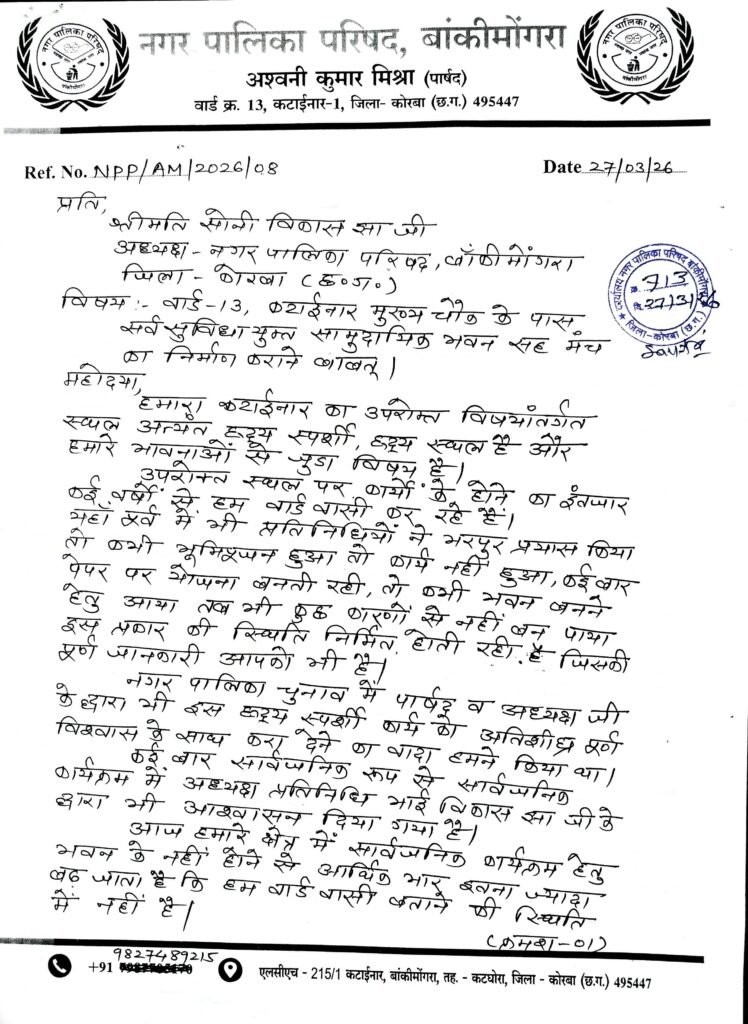 नगर पालिका परिषद, बांकीमोंगरा
अश्वनी कुमार मिश्रा (पार्षद)
वार्ड क्र. 13, कटाईनार-1, जिला- कोरबा (छ.ग.) 495447
Ref. No. NPP/AM/2026/08
Date 27/03/26
प्रति,
श्रीमति सोनी विकास झा जी
अध्यक्ष - नगर पालिका परिषद, बाँकीमोंगरा
जिला - कोरबा (छ०ग०)
कार्यालय नगर पालिका परिषद बांकीमोंगरा
क्र. 713
दि. 27/3/26
जिला-कोरबा (छ.ग.)
विषय :- वार्ड-13, कटाईनार मुख्य चौक के पास
सर्व सुविधा युक्त सामुदायिक भवन सह मंच
का निर्माण कराने बाबत् ।
महोदया,
हमारा कटाईनार का उपरोक्त विषयांतर्गत
स्थल अत्यंत हृदय स्पर्शी, हृदय स्थल है और
हमारे भावनाओं से जुडा विषय है।
उपरोक्त स्थल पर कार्यो के होने का इंतजार
कई वर्षो से हम वार्ड वासी कर रहे हैं।
यहाँ पूर्व में भी प्रतिनिधियों ने भरपुर प्रयास किया
तो कभी भूमिपूजन हुआ तो कार्य नहीं हुआ, कई बार
पेपर पर योजना बनती रही, तो कभी भवन बनने
हेतु आया तब भी कुछ कारणों से नहीं बन पाया
इस प्रकार की स्थिति निर्मित होती रही है जिसकी
पूर्ण जानकारी आपको भी है।
नगर पालिका चुनाव में पार्षद व अध्यक्ष जी
के द्वारा भी इस हृदय स्पर्शी कार्य को अतिशीघ्र पूर्ण
विश्वास के साथ करा देने का वादा हमने किया था।
कई बार सार्वजनिक रूप से सार्वजनिक
कार्यक्रम में अध्यक्ष प्रतिनिधि भाई विकास झा जी के
द्वारा भी आश्वासन दिया गया है।
आज हमारे क्षेत्र में सार्वजनिक कार्यक्रम हेतु
भवन के नहीं होने से आर्थिक भार इतना ज्यादा
बढ़ जाता है कि हम वार्ड वासी बताने की स्थिति
में नहीं है।
(क्रमश-01)
9827489215
+91
एलसीएच - 215/1 कटाईनार, बांकीमोंगरा, तह. - कटघोरा, जिला - कोरबा (छ.ग.) 495447